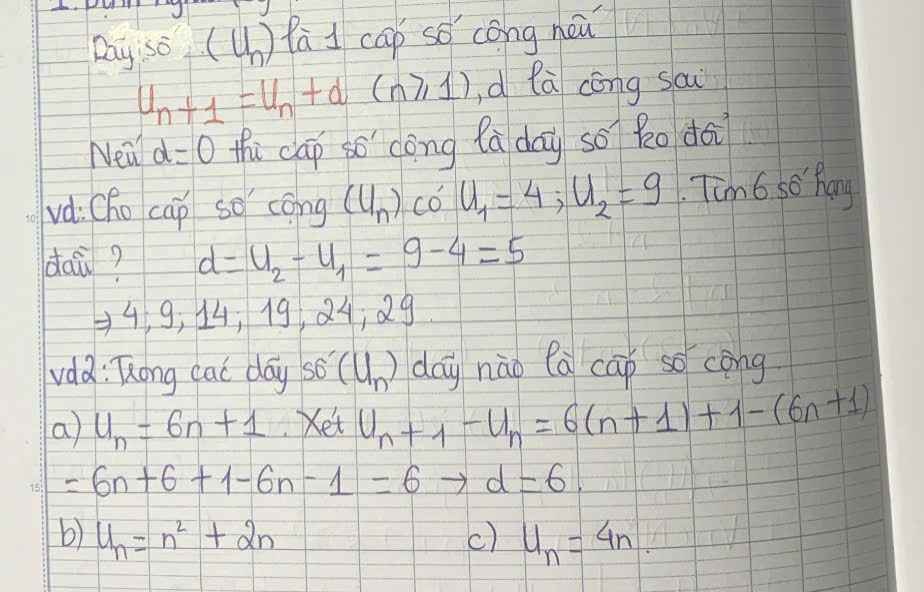 Dãy số (Uₙ) là 1 cấp số cộng nếu
Uₙ₊₁ = Uₙ + d (n ≥ 1), d là công sai
Nếu d = 0 thì cấp số cộng là dãy số ko đổi
vd: Cho cấp số cộng (Uₙ) có U₁ = 4; U₂ = 9. Tìm 6 số hạng
đầu ? d = U₂ - U₁ = 9 - 4 = 5
⇒ 4; 9; 14; 19; 24; 29
vd2: Trong các dãy số (Uₙ) dãy nào là cấp số cộng
a) Uₙ = 6n + 1. Xét Uₙ₊₁ - Uₙ = 6(n + 1) + 1 - (6n + 1)
= 6n + 6 + 1 - 6n - 1 = 6 → d = 6.
b) Uₙ = n² + 2n c) Uₙ = 4n.